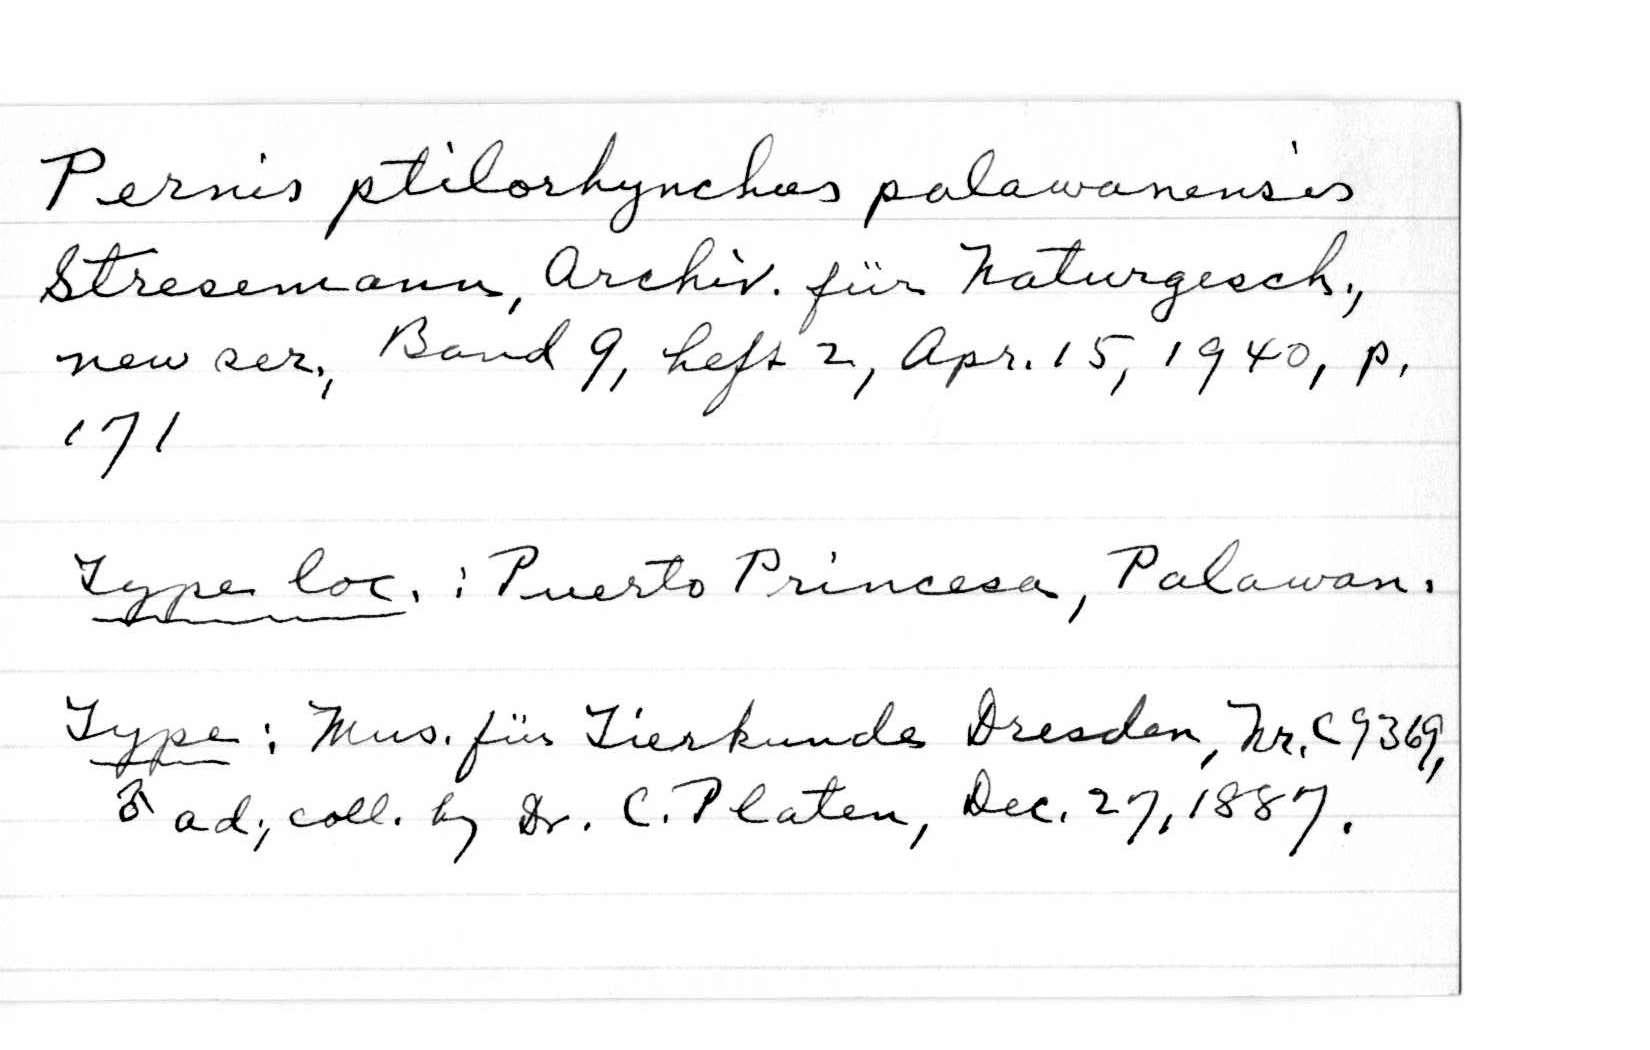 Pernis ptilorhynchus palawanensis
Stresemann, Archiv. für Naturgesch.,
new ser., Band 9, heft 2, Apr. 15, 1940, p.
171
Type loc. : Puerto Princesa, Palawan.
Type : Mus. für Tierkunde Dresden, Nr. C9369,
♂ ad., coll. by Dr. C. Platen, Dec. 27, 1887.